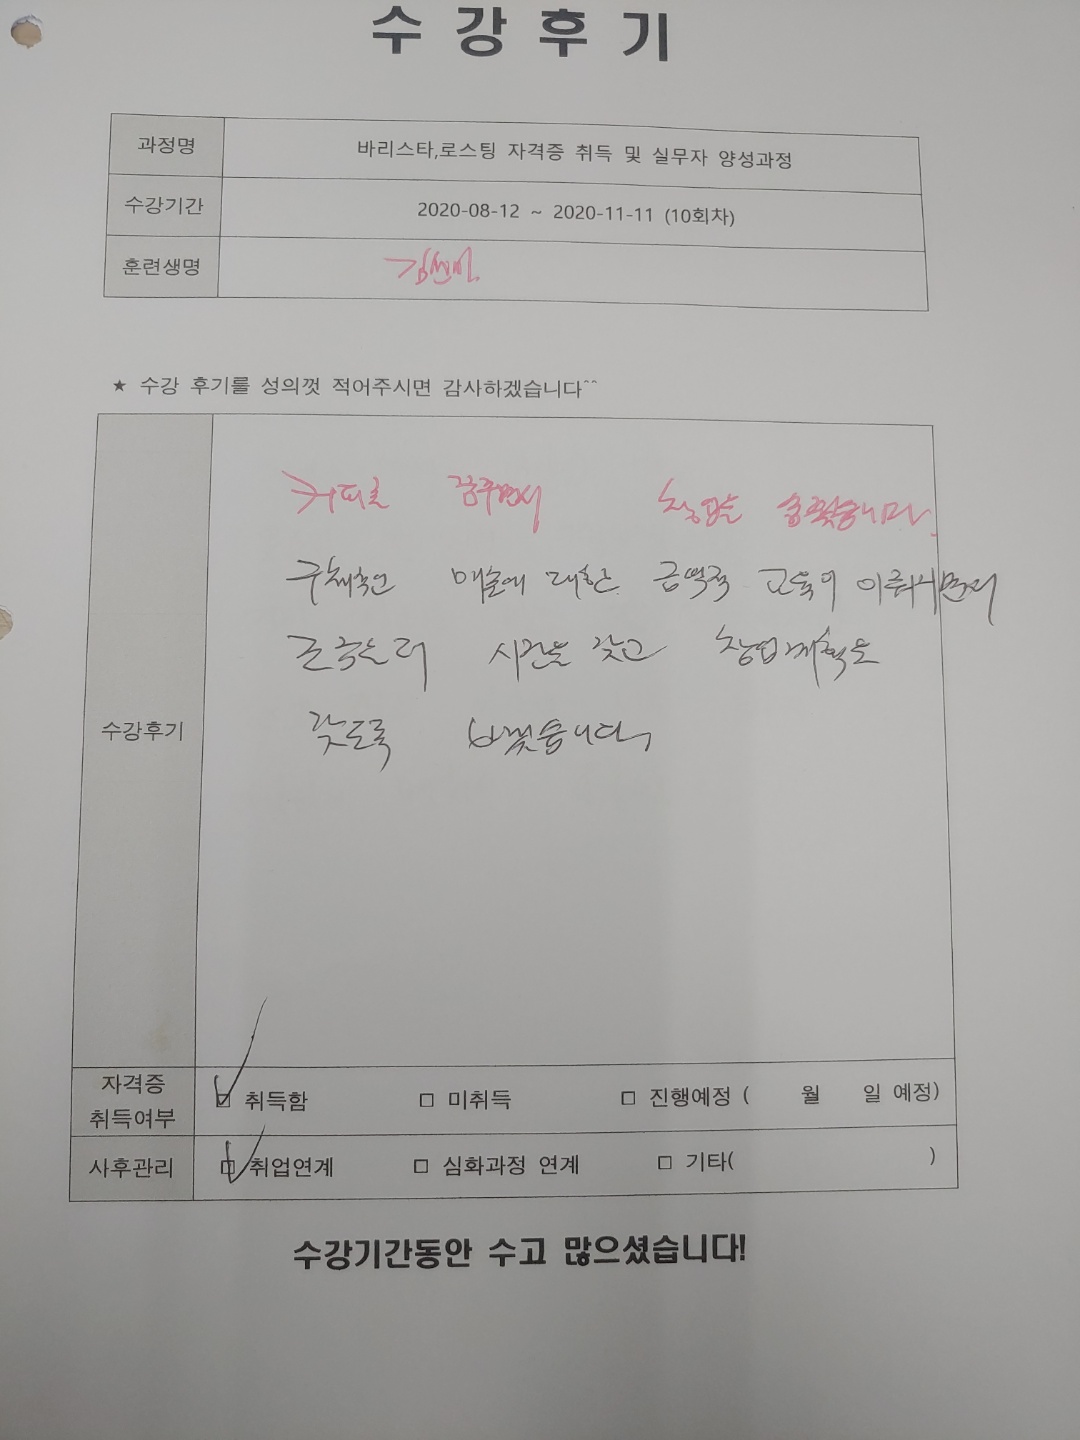 수강후기
과정명 바리스타,로스팅 자격증 취득 및 실무자 양성과정
수강기간 2020-08-12 ~ 2020-11-11 (10회차)
훈련생명
★ 수강 후기를 성의껏 적어주시면 감사하겠습니다^^
커피로 꿈꾸면서 창업을
매출에 대한 교육이
시간을 갖고 창업계획도
수강후기 갖도록
자격증 취득여부 ☑ 취득함 □ 미취득 □ 진행예정 ( 월 일 예정)
사후관리 ☑ 취업연계 □ 심화과정 연계 □ 기타( )
수강기간동안 수고 많으셨습니다!